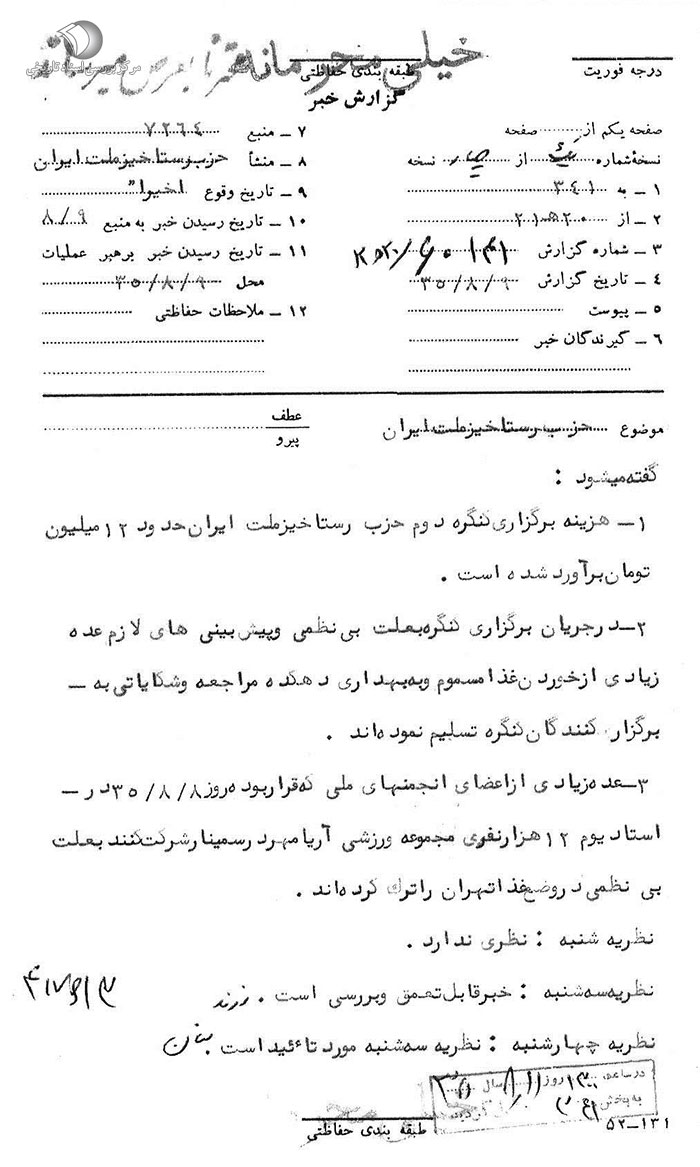 مرکز بررسی اسناد تاریخی
خیلی محرمانه
درجه فوریت
طبقه بندی حفاظتی
گزارش خبر
صفحه یکم از صفحه
نسخه شماره از نسخه
۱ ـ به ۳۴۱
۲ ـ از ۲۰ ه ۲۱
۳ ـ شماره گزارش
۴ ـ تاریخ گزارش ۳۵/۸/۹
۵ ـ پیوست
۶ ـ گیرندگان خبر
۷ ـ منبع ۷۲۶۴
۸ ـ منشأ حزب رستاخیز ملت ایران
۹ ـ تاریخ وقوع اخیرا"
۱۰ ـ تاریخ رسیدن خبر به منبع ۸/۹
۱۱ ـ تاریخ رسیدن خبر برهبر عملیات
محل ۳۵/۸/۹
۱۲ ـ ملاحظات حفاظتی
موضوع حزب رستاخیز ملت ایران
عطف
پیرو
گفته میشود :
۱ـ هزینه برگزاری کنگره دوم حزب رستاخیز ملت ایران حدود ۱۲ میلیون
تومان برآورد شده است .
۲ـ در جریان برگزاری کنگره بعلت بی نظمی وپیش بینی های لازم عده
زیادی ازخوردن غذا مسموم وبه بهداری دهکده مراجعه وشکایاتی به ـ
برگزار کنندگان کنگره تسلیم نموده اند .
۳ـ عده زیادی ازاعضای انجمنهای ملی که قرار بود ه روز ۳۵/۸/۸ در ـ
استادیوم ۱۲ هزار نفری مجموعه ورزشی آریامهر در سمینار شرکت کنند بعلت
بی نظمی در وضع غذا تهران را ترک کرده اند .
نظریه شنبه : نظری ندارد .
نظریه سه شنبه : خبر قابل تعمق وبررسی است .
نظریه چهارشنبه : نظریه سه شنبه مورد تائید است
در ساعت روز ۱۱/۸ سال ۳۵
به بخش
طبقه بندی حفاظتی
۵۲ـ۱۳۱